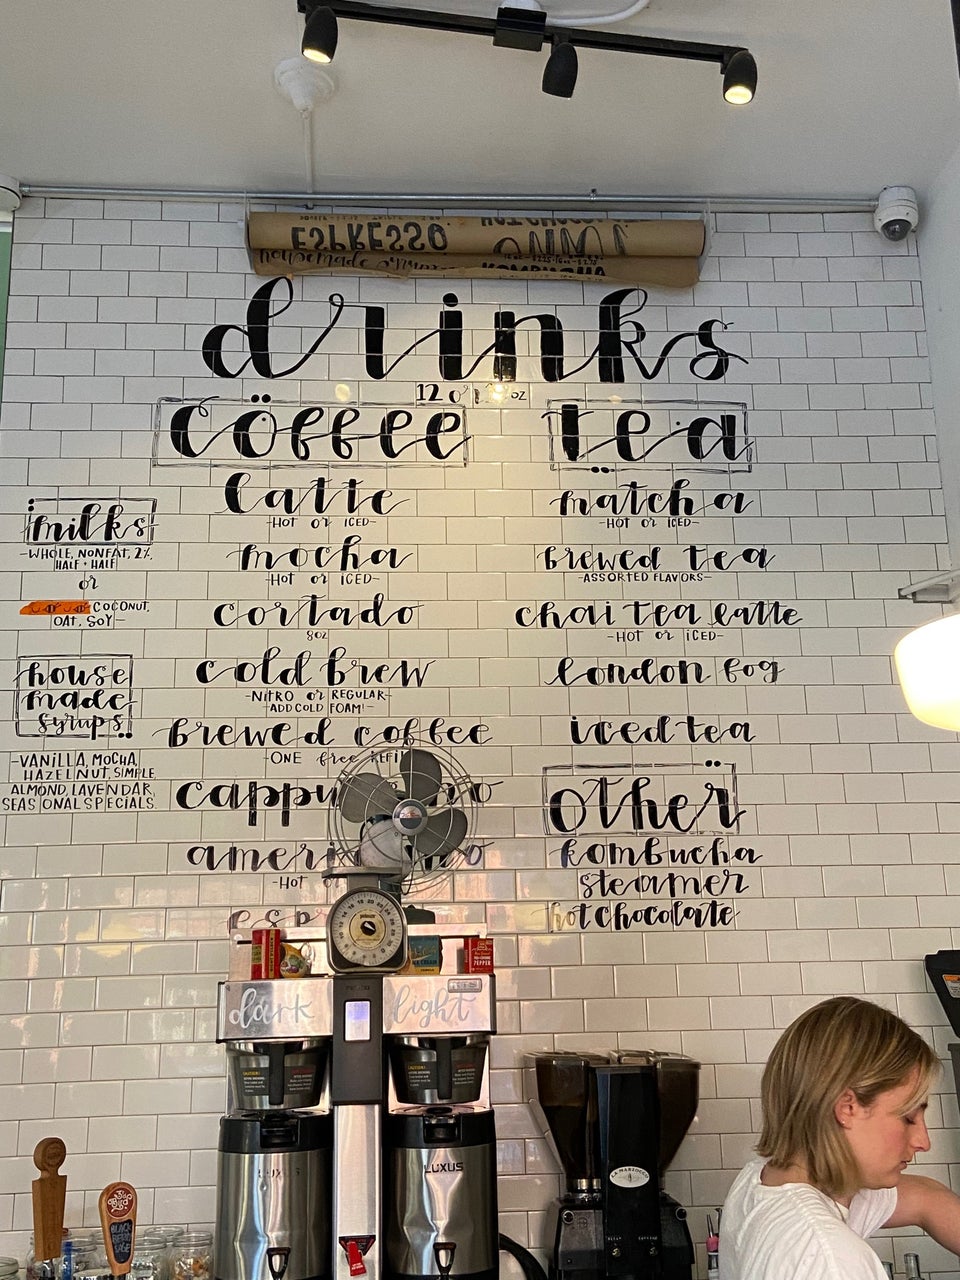 ESPRESSO
homemade
KOMBUCHA
drinks
12 or
oz
cöffee
tea
latte
-HOT or ICED-
mocha
-HOT or ICED-
cortado
8oz
cold brew
-NITRO or REGULAR-
-ADD COLD FOAM!-
brewed coffee
-ONE free REFILL
ameri
-HOT
matcha
-HOT or ICED-
brewed tea
-ASSORTED FLAVORS-
chai tea latte
-HOT or ICED-
london fog
iced tea
other
kombucha
steamer
hot chocolate
milks
-WHOLE, NONFAT, 2%,
HALF + HALF
or
COCONUT,
OAT, SOY-
house
made
syrups
-VANILLA, MOCHA,
HAZELNUT, SIMPLE,
ALMOND, LAVENDAR,
SEASONAL SPECIALS.
dark
light
LUXUS
LA MARZOCCO
BLACK
BERRY
SAGE